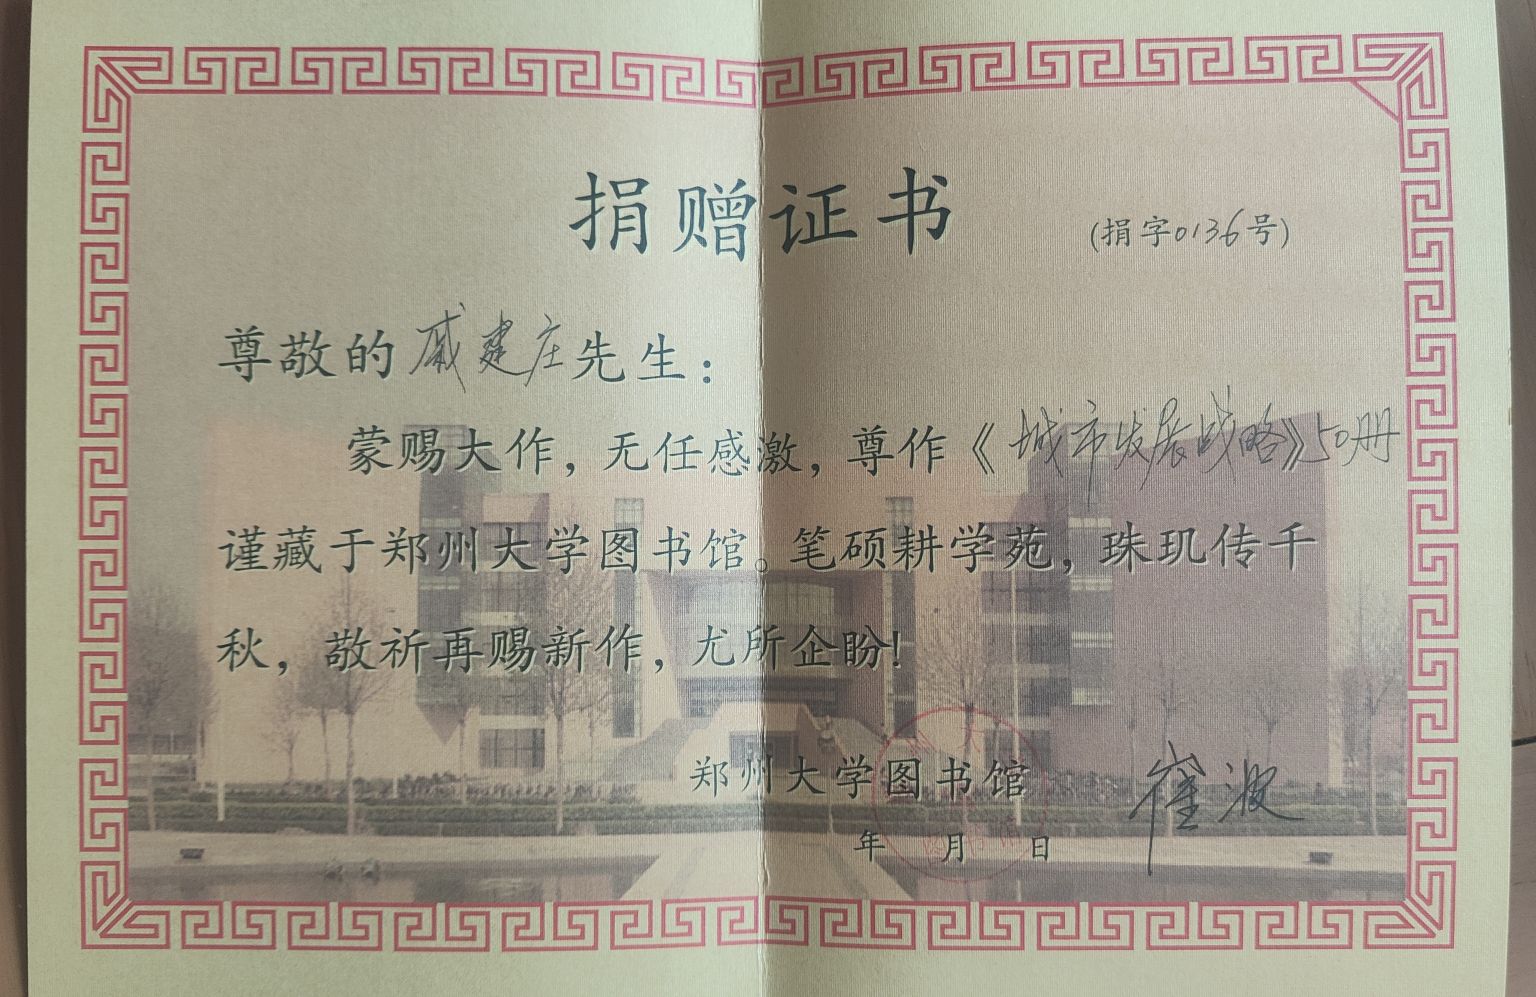 捐赠证书
(捐字0136号)
尊敬的戚建庄先生：
蒙赐大作，无任感激，尊作《城市发展战略》50册
谨藏于郑州大学图书馆。笔硕耕学苑，珠玑传千
秋，敬祈再赐新作，尤所企盼！
郑州大学图书馆
崔波
年 月 日
图书馆